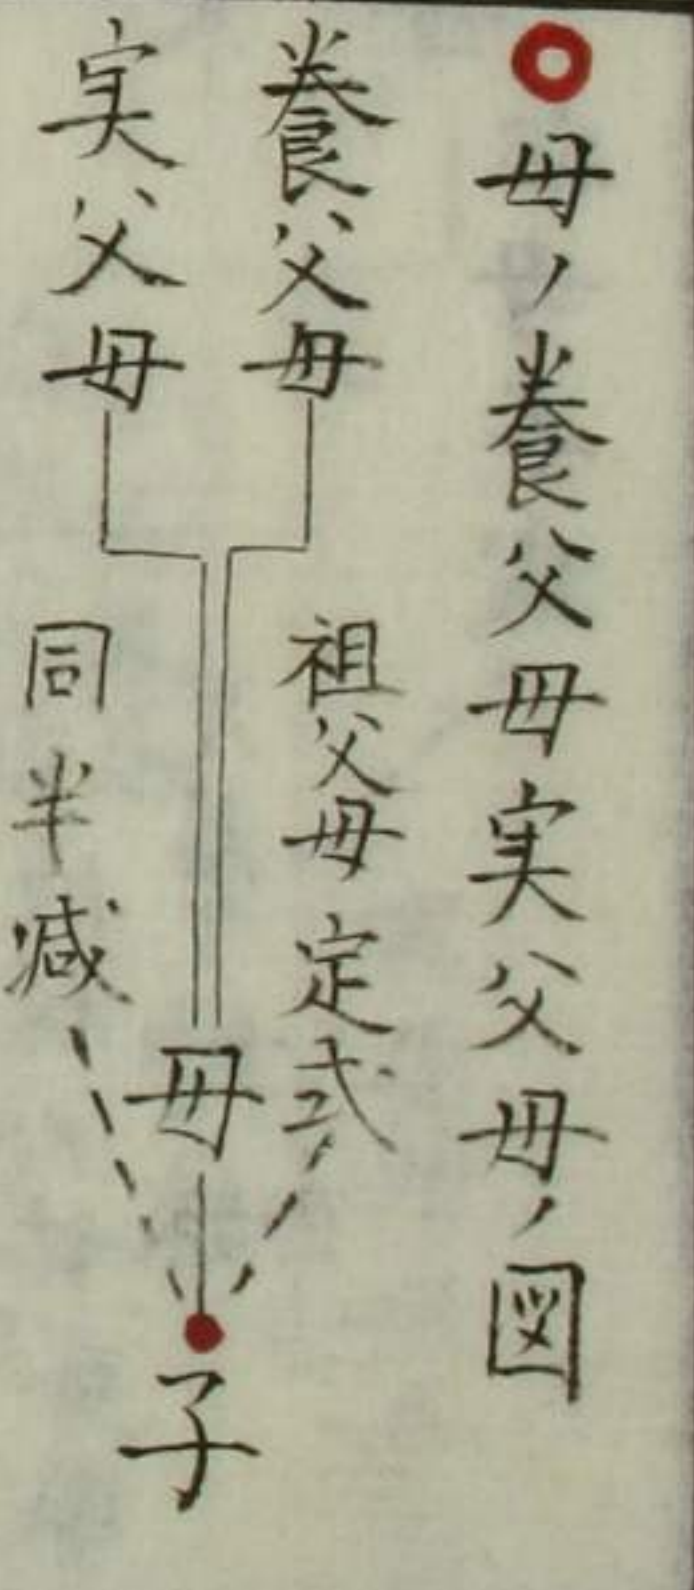 母ノ養父母実父母ノ図
養父母
実父母
祖父母定式
同半減
母
子